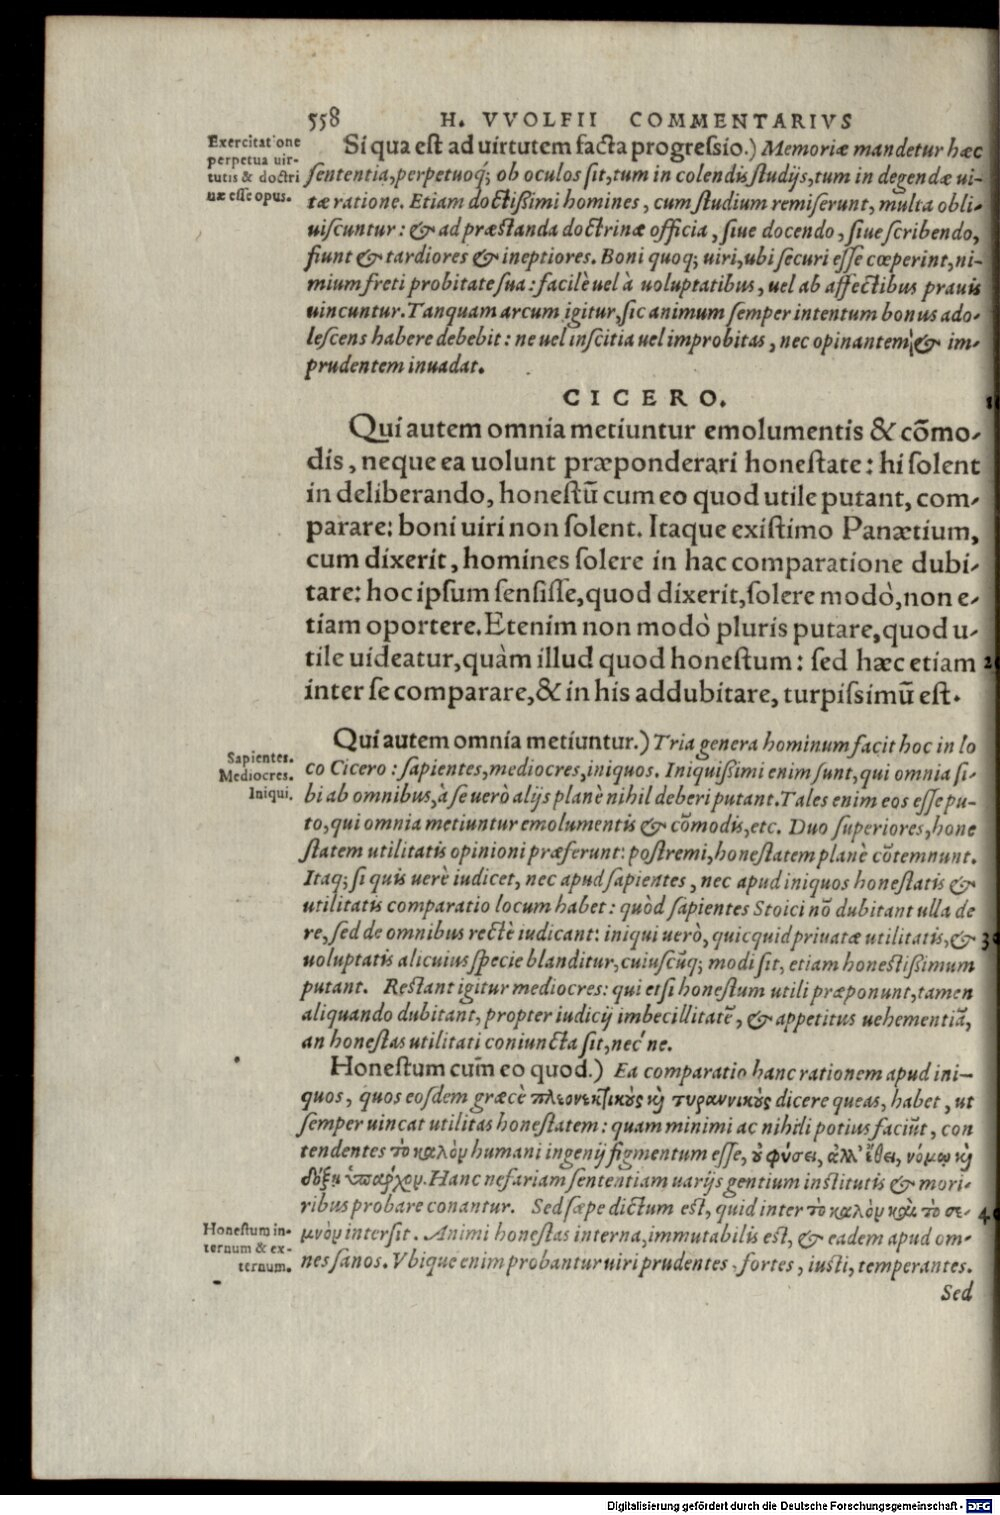 558 H. VVOLFII COMMENTARIVS
Exercitatione
perpetua uir-
tutis & doctri
næ esse opus.
Si qua est ad uirtutem facta progressio.) Memoriæ mandetur hæc
sententia, perpetuoq́; ob oculos sit, tum in colendis studijs, tum in degendæ ui-
tæ ratione. Etiam doctißimi homines, cum studium remiserunt, multa obli-
uiscuntur: & ad præstanda doctrinæ officia, siue docendo, siue scribendo,
fiunt & tardiores & ineptiores. Boni quoq; uiri, ubi securi esse cœperint, ni-
mium freti probitate sua: facilè uel à uoluptatibus, uel ab affectibus prauis
uincuntur. Tanquam arcum igitur, sic animum semper intentum bonus ado-
lescens habere debebit: ne uel inscitia uel improbitas, nec opinantem & im-
prudentem inuadat.
CICERO.
Qui autem omnia metiuntur emolumentis & cõmo-
dis, neque ea uolunt præponderari honestate: hi solent
in deliberando, honestũ cum eo quod utile putant, com-
parare: boni uiri non solent. Itaque existimo Panætium,
cum dixerit, homines solere in hac comparatione dubi-
tare: hoc ipsum sensisse, quod dixerit, solere modò, non e-
tiam oportere. Etenim non modò pluris putare, quod u-
tile uideatur, quàm illud quod honestum: sed hæc etiam
inter se comparare, & in his addubitare, turpissimũ est.
Sapientes.
Mediocres.
Iniqui.
Qui autem omnia metiuntur.) Tria genera hominum facit hoc in lo
co Cicero: sapientes, mediocres, iniquos. Iniquißimi enim sunt, qui omnia si-
bi ab omnibus, à se uerò alijs planè nihil deberi putant. Tales enim eos esse pu-
to, qui omnia metiuntur emolumentis & cõmodis, etc. Duo superiores, hone
statem utilitatis opinioni præferunt: postremi, honestatem planè cõtemnunt.
Itaq; si quis uerè iudicet, nec apud sapientes, nec apud iniquos honestatis &
utilitatis comparatio locum habet: quòd sapientes Stoici nõ dubitant ulla de
re, sed de omnibus rectè iudicant: iniqui uerò, quicquid priuatæ utilitatis, & 30
uoluptatis alicuius specie blanditur, cuiuscũq; modi sit, etiam honestißimum
putant. Restant igitur mediocres: qui etsi honestum utili præponunt, tamen
aliquando dubitant, propter iudicij imbecillitatẽ, & appetitus uehementiã,
an honestas utilitati coniuncta sit, nec ne.
Honestum cum eo quod.) Ea comparatio hanc rationem apud ini-
quos, quos eosdem græcè πλεονεκτικοὺς κὴ τυραννικοὺς dicere queas, habet, ut
semper uincat utilitas honestatem: quam minimi ac nihili potius faciũt, con
tendentes τὸ καλὸν humani ingenij figmentum esse, οὐ φύσει, ἀλλ' ἔθει, νόμῳ κὴ
δόξῃ ὑπάρχον. Hanc nefariam sententiam uarijs gentium institutis & mori-
ribus probare conantur. Sed sæpe dictum est, quid inter τὸ καλὸν καὶ τὸ σε- 40
μνὸν intersit. Animi honestas interna, immutabilis est, & eadem apud om-
nes sanos. Vbique enim probantur uiri prudentes, fortes, iusti, temperantes.
Honestum in-
ternum & ex-
ternum.
Sed
Digitalisierung gefördert durch die Deutsche Forschungsgemeinschaft - DFG